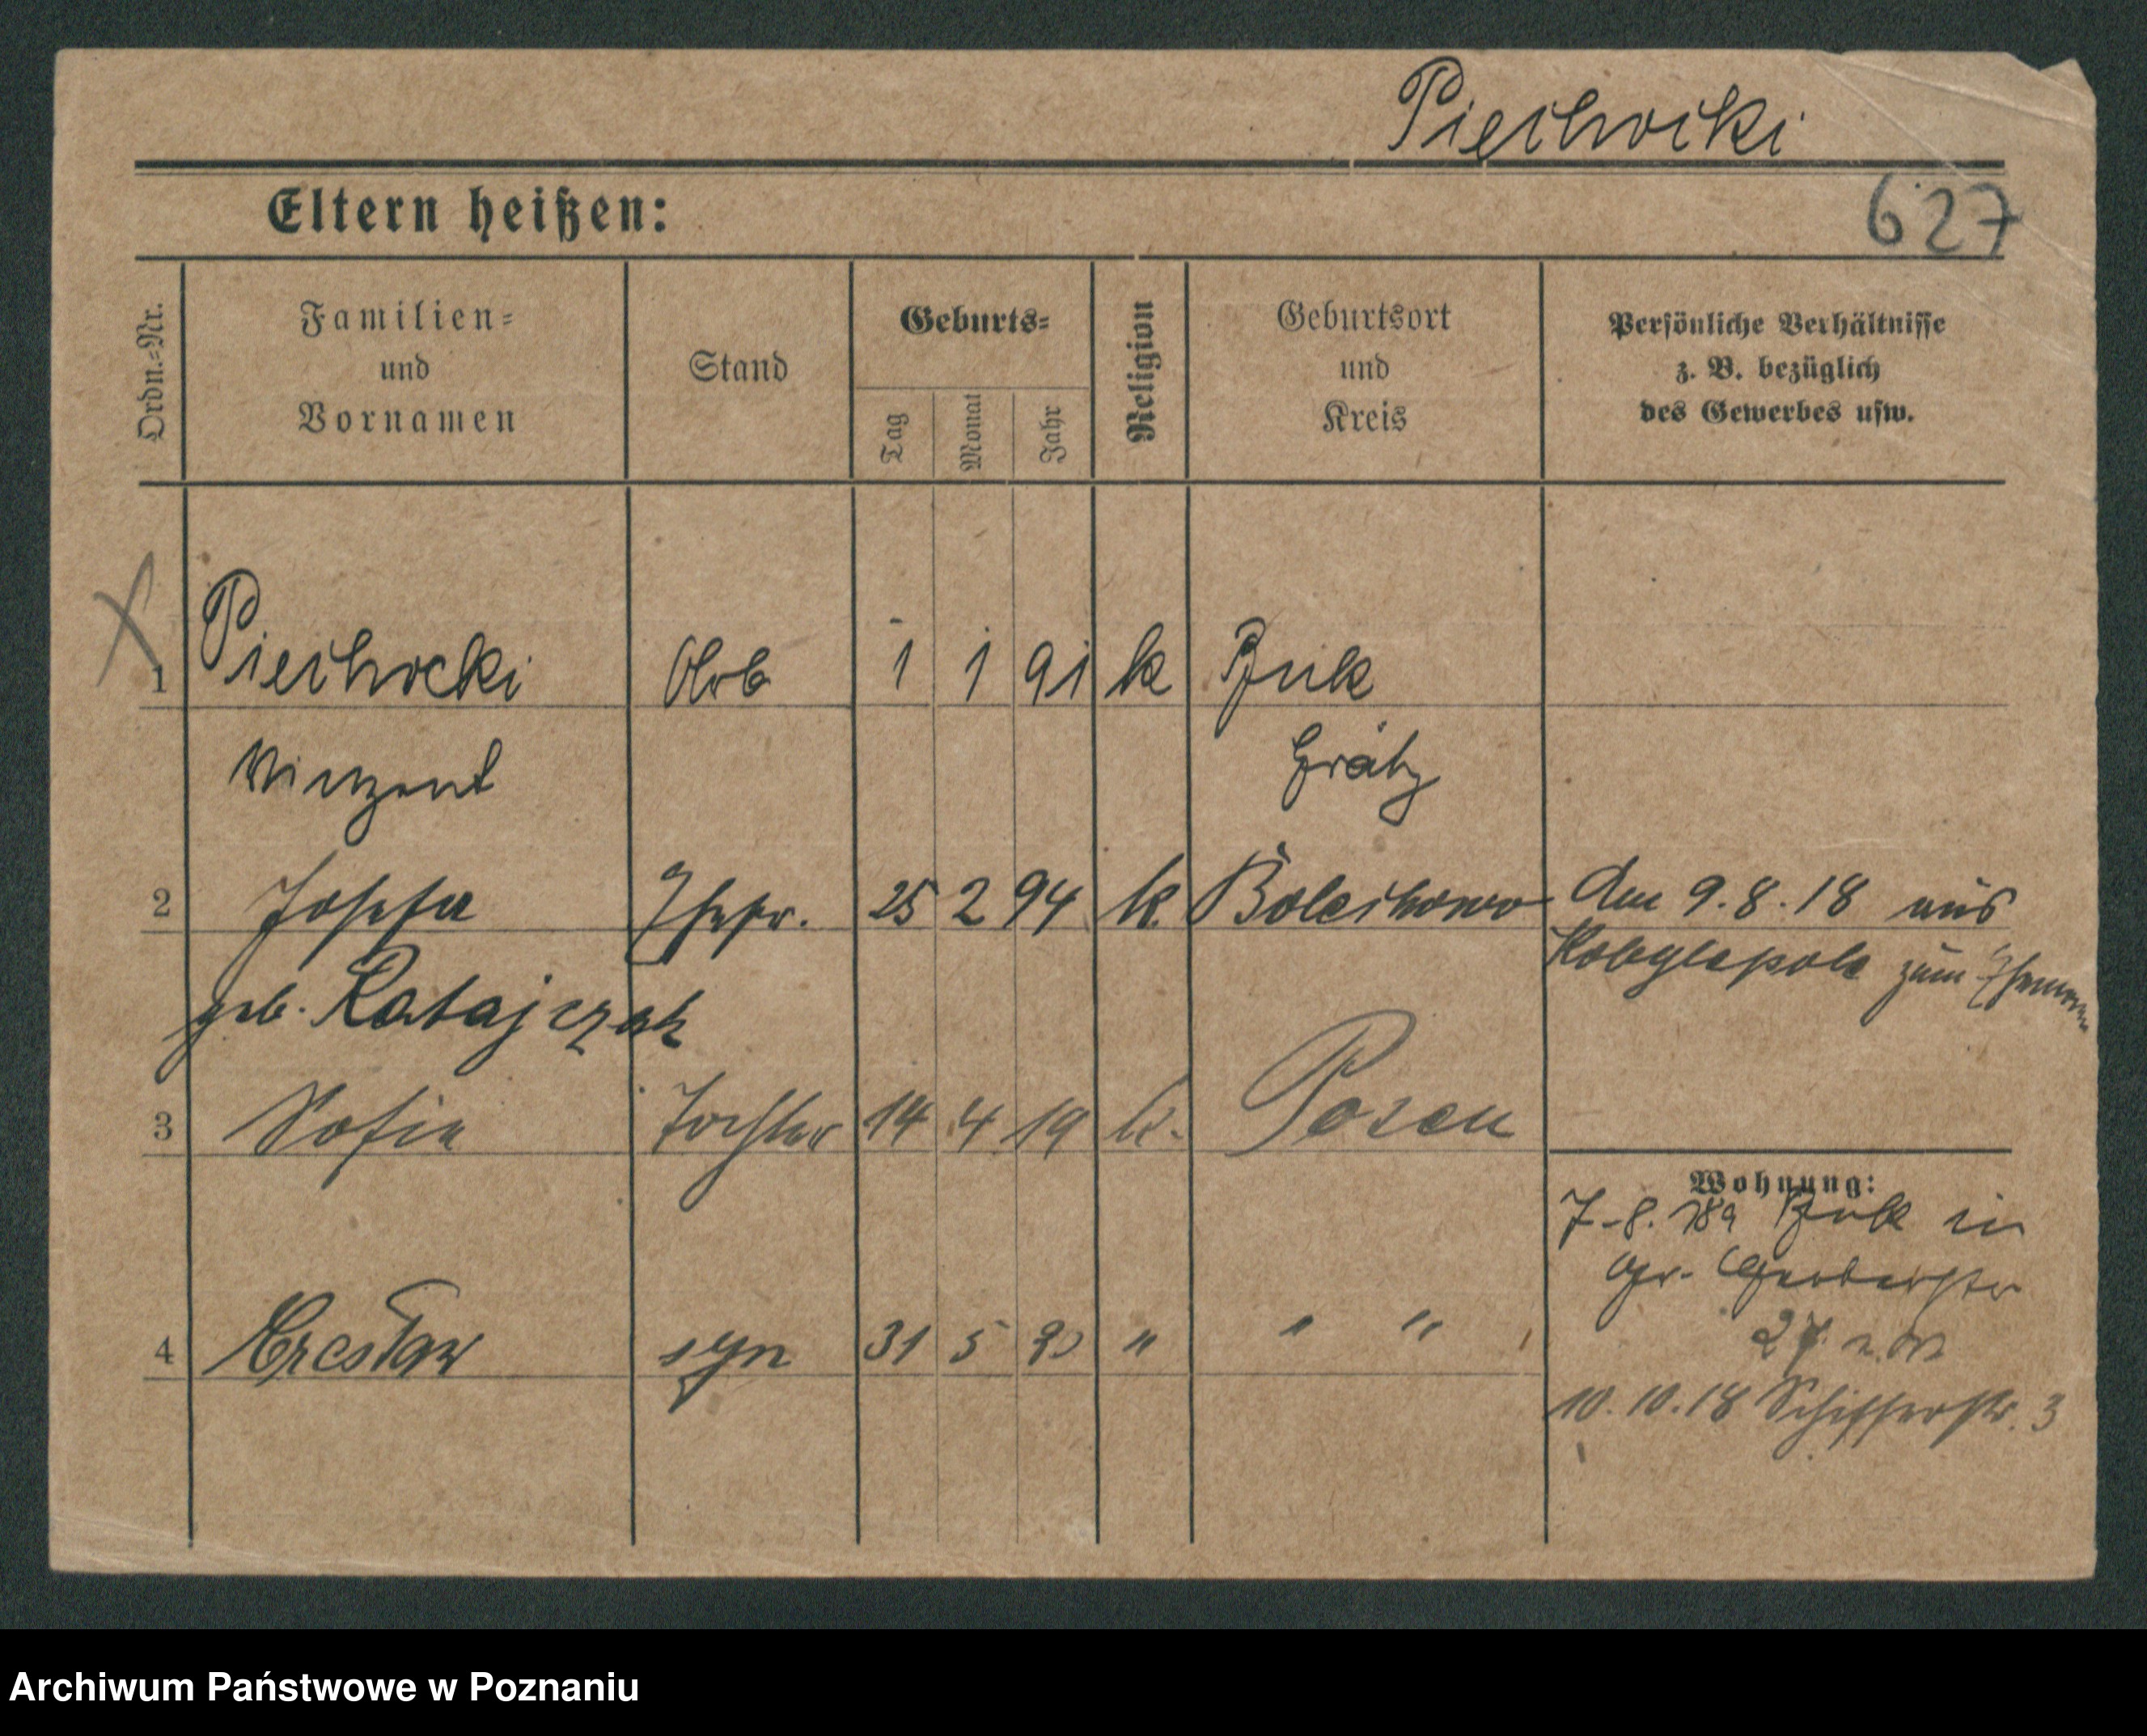 Piechocki
Eltern heißen:
627
Ordn.=Nr.
Familien=
und
Vornamen
Stand
Geburts=
Tag
Monat
Jahr
Religion
Geburtsort
und
Kreis
Persönliche Verhältnisse
z. B. bezüglich
des Gewerbes usw.
1 Piechocki Arb 1 1 91 k Buk
Vinzent Grätz
2 Josefa Ehefr. 25 2 94 k. Bolechowo Am 9.8.18 aus
geb. Ratajczak Kobylepole zum Ehemann
3 Sofia Tochter 14 4 19 k. Posen
Wohnung:
7.8. Buk in
Gr. Gerberstr
4 Czesław syn 31 5 " " "
27
10.10.18 Schifferstr. 3
Archiwum Państwowe w Poznaniu